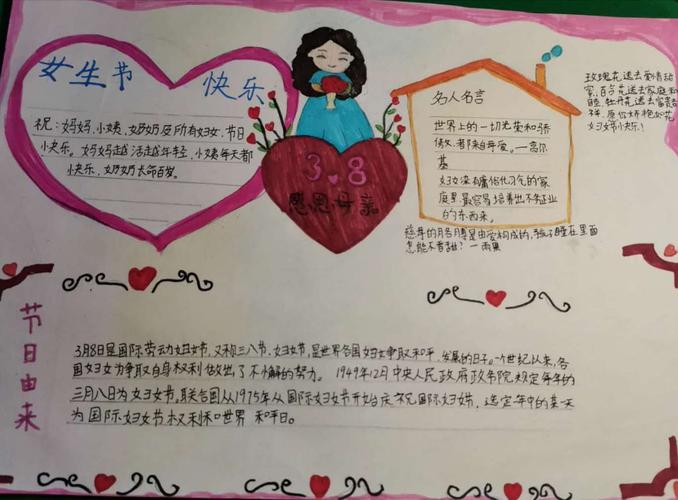 女生节 快乐
祝:妈妈,小姨,奶奶及所有妇女,节日
小快乐。妈妈越活越年轻,小姨每天都
快乐,奶奶长命百岁。
3.8
感恩母亲
名人名言
世界上的一切光荣和骄
傲,都来自母爱。—高尔
基
妇女深有庸俗化习气的家
庭里,最容易培养出不务正业
的东西来。
慈母的胳膊是由爱构成的,孩子睡在里面
怎能不香甜?—雨果
玫瑰花送去爱情甜
蜜,百合花送去家庭和
睦,牡丹花送去富贵吉
祥,愿你娇艳如花
妇女节快乐!
节日由来
3月8日是国际劳动妇女节,又称三八节、妇女节,是世界各国妇女争取和平、发展的日子。一个世纪以来,各
国妇女为争取自身权利做出了不懈的努力。1949年12月中央人民政府政务院规定每年的
三月八日为妇女节,联合国从1975年从国际妇女节开始庆祝国际妇女节,选定年中的某天
为国际妇女节权利和世界和平日。